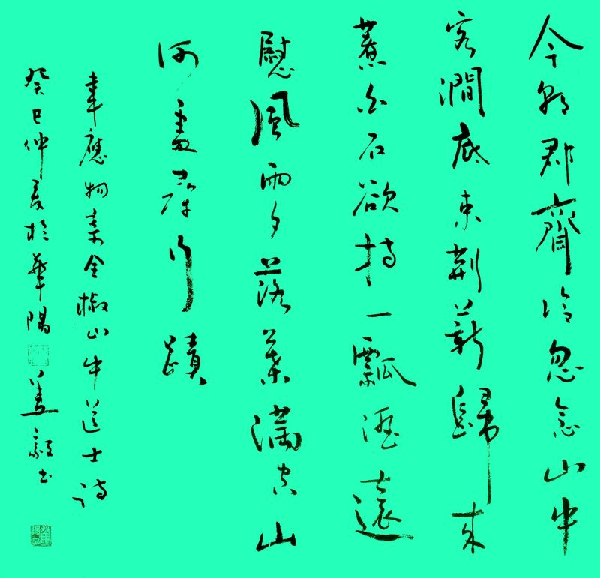 今朝郡齋冷忽念山中
客澗底束荊薪歸來
煮白石欲持一瓢酒遠
慰風雨夕落葉滿空山
何處尋行蹟
韋應物寄全椒山中道士詩
癸巳仲夏於華陽